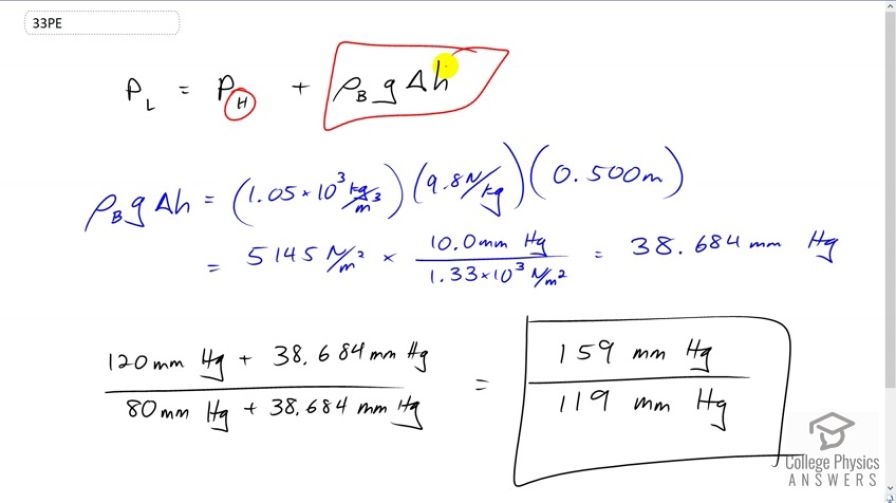 33PE
P_L = P_H + ρ_B g Δh
ρ_B g Δh = (1.05 × 10³ kg/m³) (9.8 N/kg) (0.500 m)
= 5145 N/m² × 10.0 mm Hg / 1.33 × 10³ N/m² = 38.684 mm Hg
120 mm Hg + 38.684 mm Hg / 80 mm Hg + 38.684 mm Hg = 159 mm Hg / 119 mm Hg
College Physics
ANSWERS